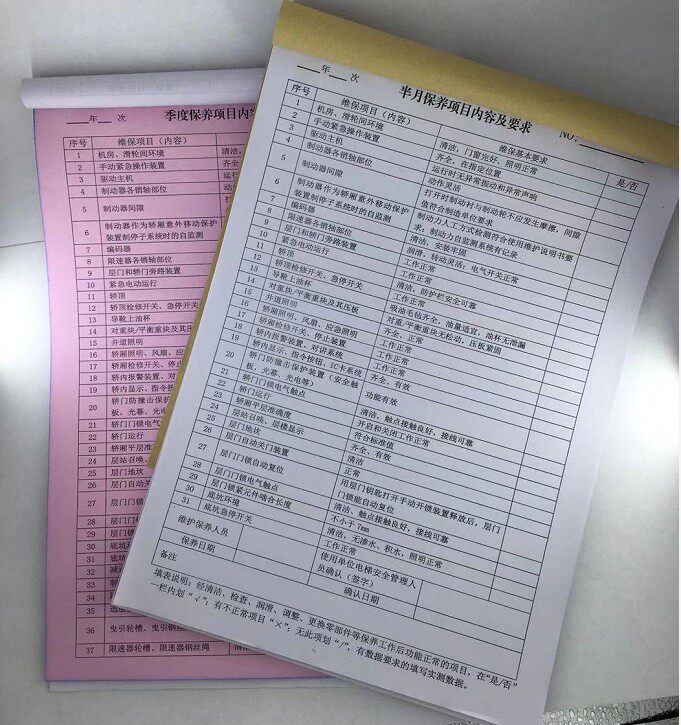 年 次
季度保养项目内容
序号 维保项目（内容）
1 机房、滑轮间环境 清洁，
2 手动紧急操作装置 齐全，
3 驱动主机 运行
4 制动器各销轴部位
5 制动器间隙
6 制动器作为轿厢意外移动保护
装置制停子系统时的自监测
7 编码器
8 限速器各销轴部位
9 层门和轿门旁路装置
10 紧急电动运行
11 轿顶
12 轿顶检修开关、急停开关
13 导靴上油杯
14 对重块/平衡重块及其压
15 井道照明
16 轿厢照明、风扇、应
17 轿厢检修开关、
18 轿内报警装置、对
19 轿内显示、指令按
20 轿门防撞击保护
板，光幕，光电
21 轿门门锁电气
22 轿门运行
23 轿厢平层准
24 层站召唤、
25 层门地坎
26 层门自动关
27 层门门锁
28 层门门
29 层门锁
30 底坑
31 底坑
32
33
34
35
36 曳引轮槽、曳引钢丝
37 限速器轮槽、限速器钢丝绳 清洁
年 次
半月保养项目内容及要求
NO:
序号 维保项目（内容） 维保基本要求 是/否
1 机房、滑轮间环境 清洁，门窗完好、照明正常
2 手动紧急操作装置 齐全，在指定位置
3 驱动主机 运行时无异常振动和异常声响
4 制动器各销轴部位 动作灵活
5 制动器间隙 打开时制动衬与制动轮不应发生摩擦，间隙
值符合制造单位要求
6 制动器作为轿厢意外移动保护 制动力人工方式检测符合使用维护说明书要
装置制停子系统时的自监测 求；制动力自监测系统有记录
7 编码器 清洁，安装牢固
8 限速器各销轴部位 润滑，转动灵活；电气开关正常
9 层门和轿门旁路装置 工作正常
10 紧急电动运行 工作正常
11 轿顶 清洁，防护栏安全可靠
12 轿顶检修开关、急停开关 工作正常
13 导靴上油杯 吸油毛毡齐全，油量适宜，油杯无泄漏
14 对重块/平衡重块及其压板 对重/平衡重块无松动，压板紧固
15 井道照明 齐全、正常
16 轿厢照明、风扇、应急照明 工作正常
17 轿厢检修开关、停止装置 工作正常
18 轿内报警装置、对讲系统 工作正常
19 轿内显示、指令按钮、IC卡系统 齐全、有效
20 轿门防撞击保护装置（安全触 功能有效
板，光幕、光电等）
21 轿门门锁电气触点 清洁，触点接触良好，接线可靠
22 轿门运行 开启和关闭工作正常
23 轿厢平层准确度 符合标准值
24 层站召唤、层楼显示 齐全、有效
25 层门地坎 清洁
26 层门自动关门装置 正常
27 层门门锁自动复位 用层门钥匙打开手动开锁装置释放后，层门
门锁能自动复位
28 层门门锁电气触点 清洁、触点接触良好，接线可靠
29 层门锁紧元件啮合长度 不小于7mm
30 底坑环境 清洁，无渗水、积水，照明正常
31 底坑急停开关 工作正常
维护保养人员 使用单位电梯安全管理人
员确认（签字）
保养日期 确认日期
备注
填表说明：经清洁、检查、润滑、调整、更换零部件等保养工作后功能正常的项目，在“是/否”
一栏内划“√”；有不正常项目“×”；无此项划“/”，有数据要求的填写实测数据。